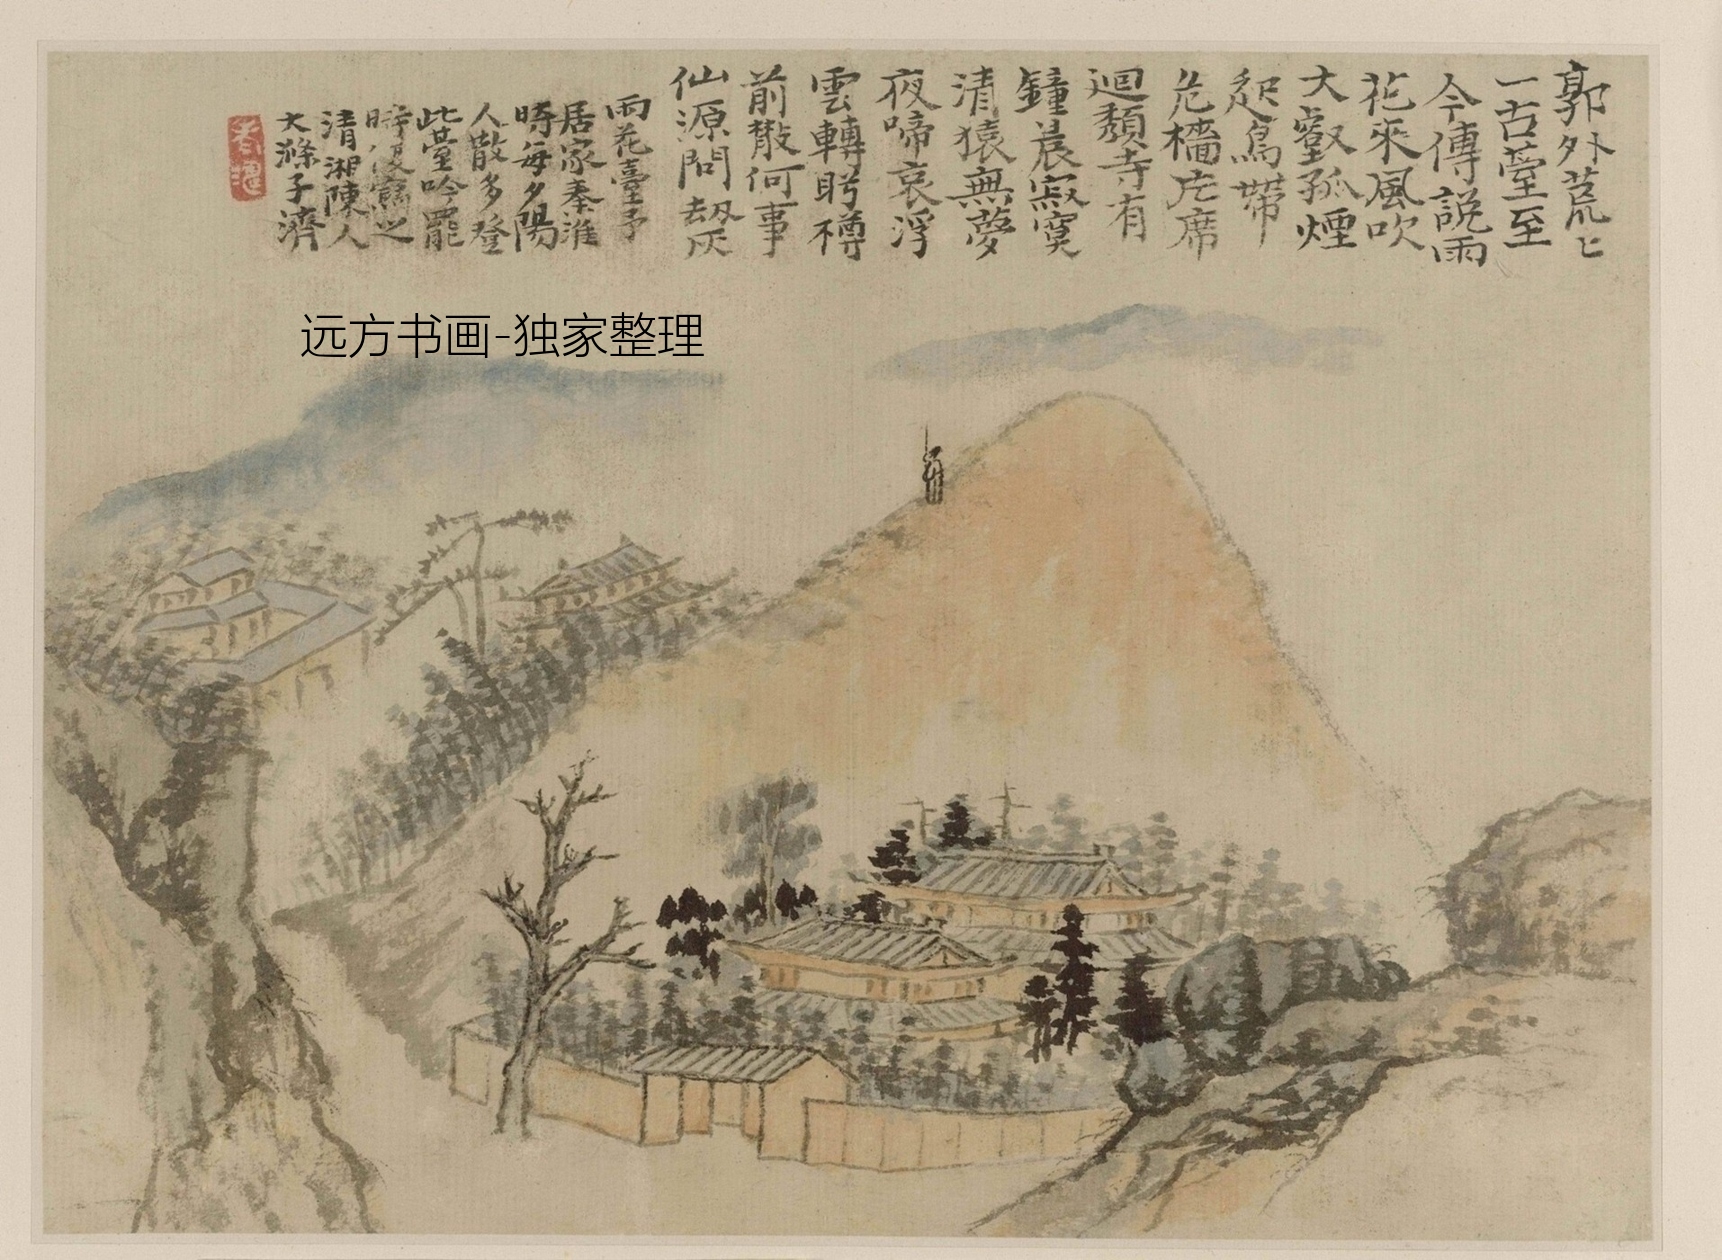 郭外荒ヒ
一古臺至
今傳說雨
花來風吹
大壑孤煙
起鳥帶
危檣片席
迴頹寺有
鐘晨寂寞
清猿無夢
夜啼哀浮
雲轉眄樽
前散何事
仙源問劫灰
雨花臺予
居家秦淮
時每夕陽
人散多登
此臺吟罷
時復寫之
清湘陳人
大滌子濟
远方书画-独家整理